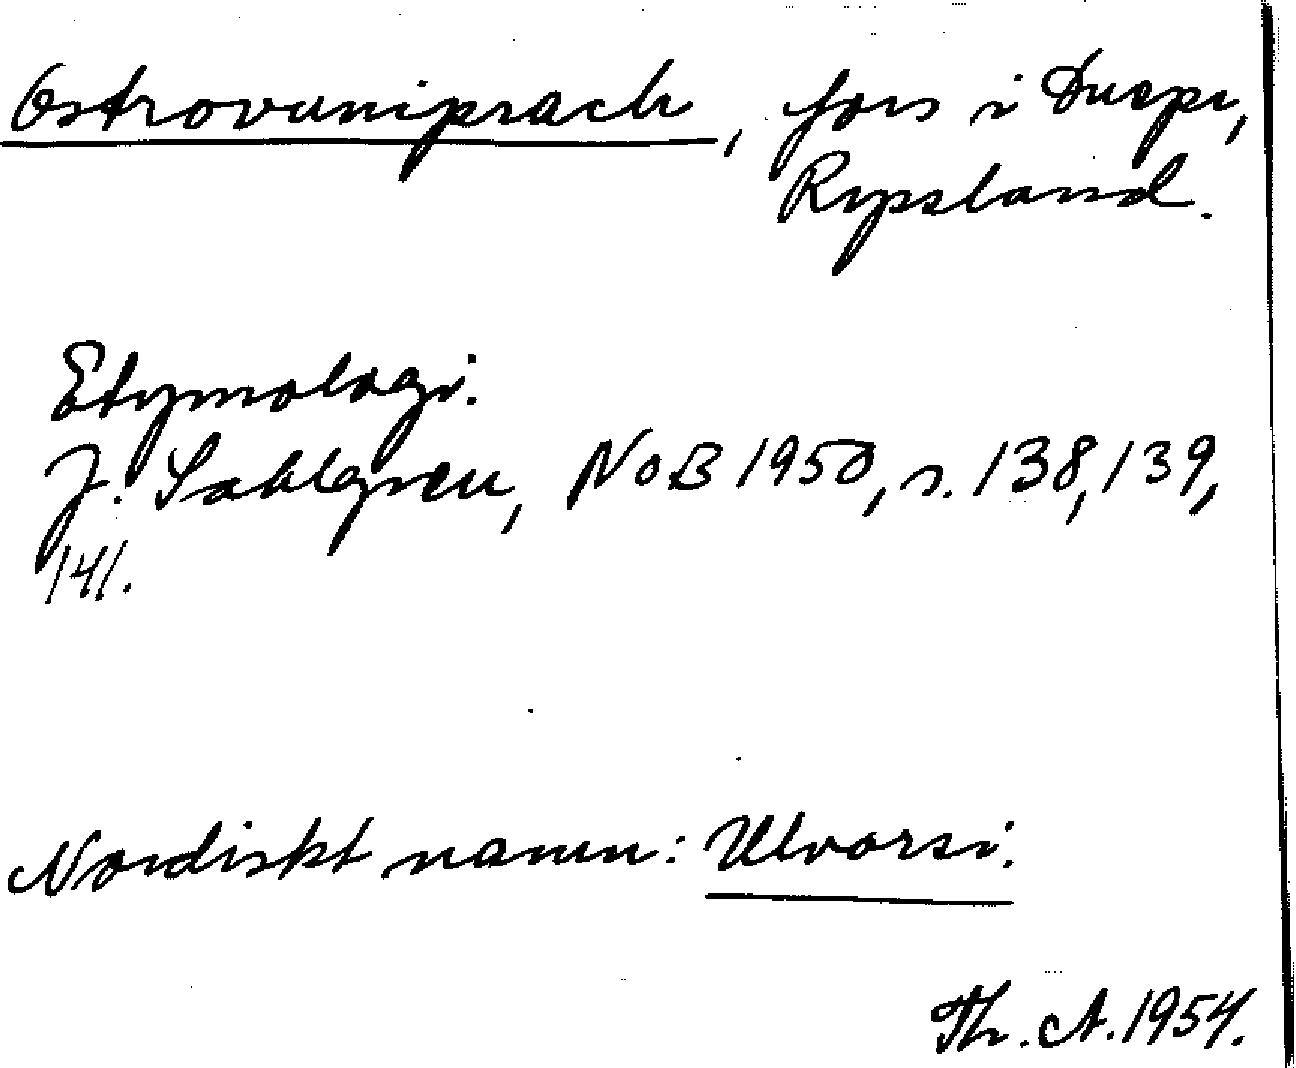 Ostrovuniprach, fors i Dnepr,
Ryssland.
Etymologi.
J. Sahlgren, NoB 1950, s. 138, 139,
141.
Nordiskt namn: Ulvorsi.
Th. A. 1954.